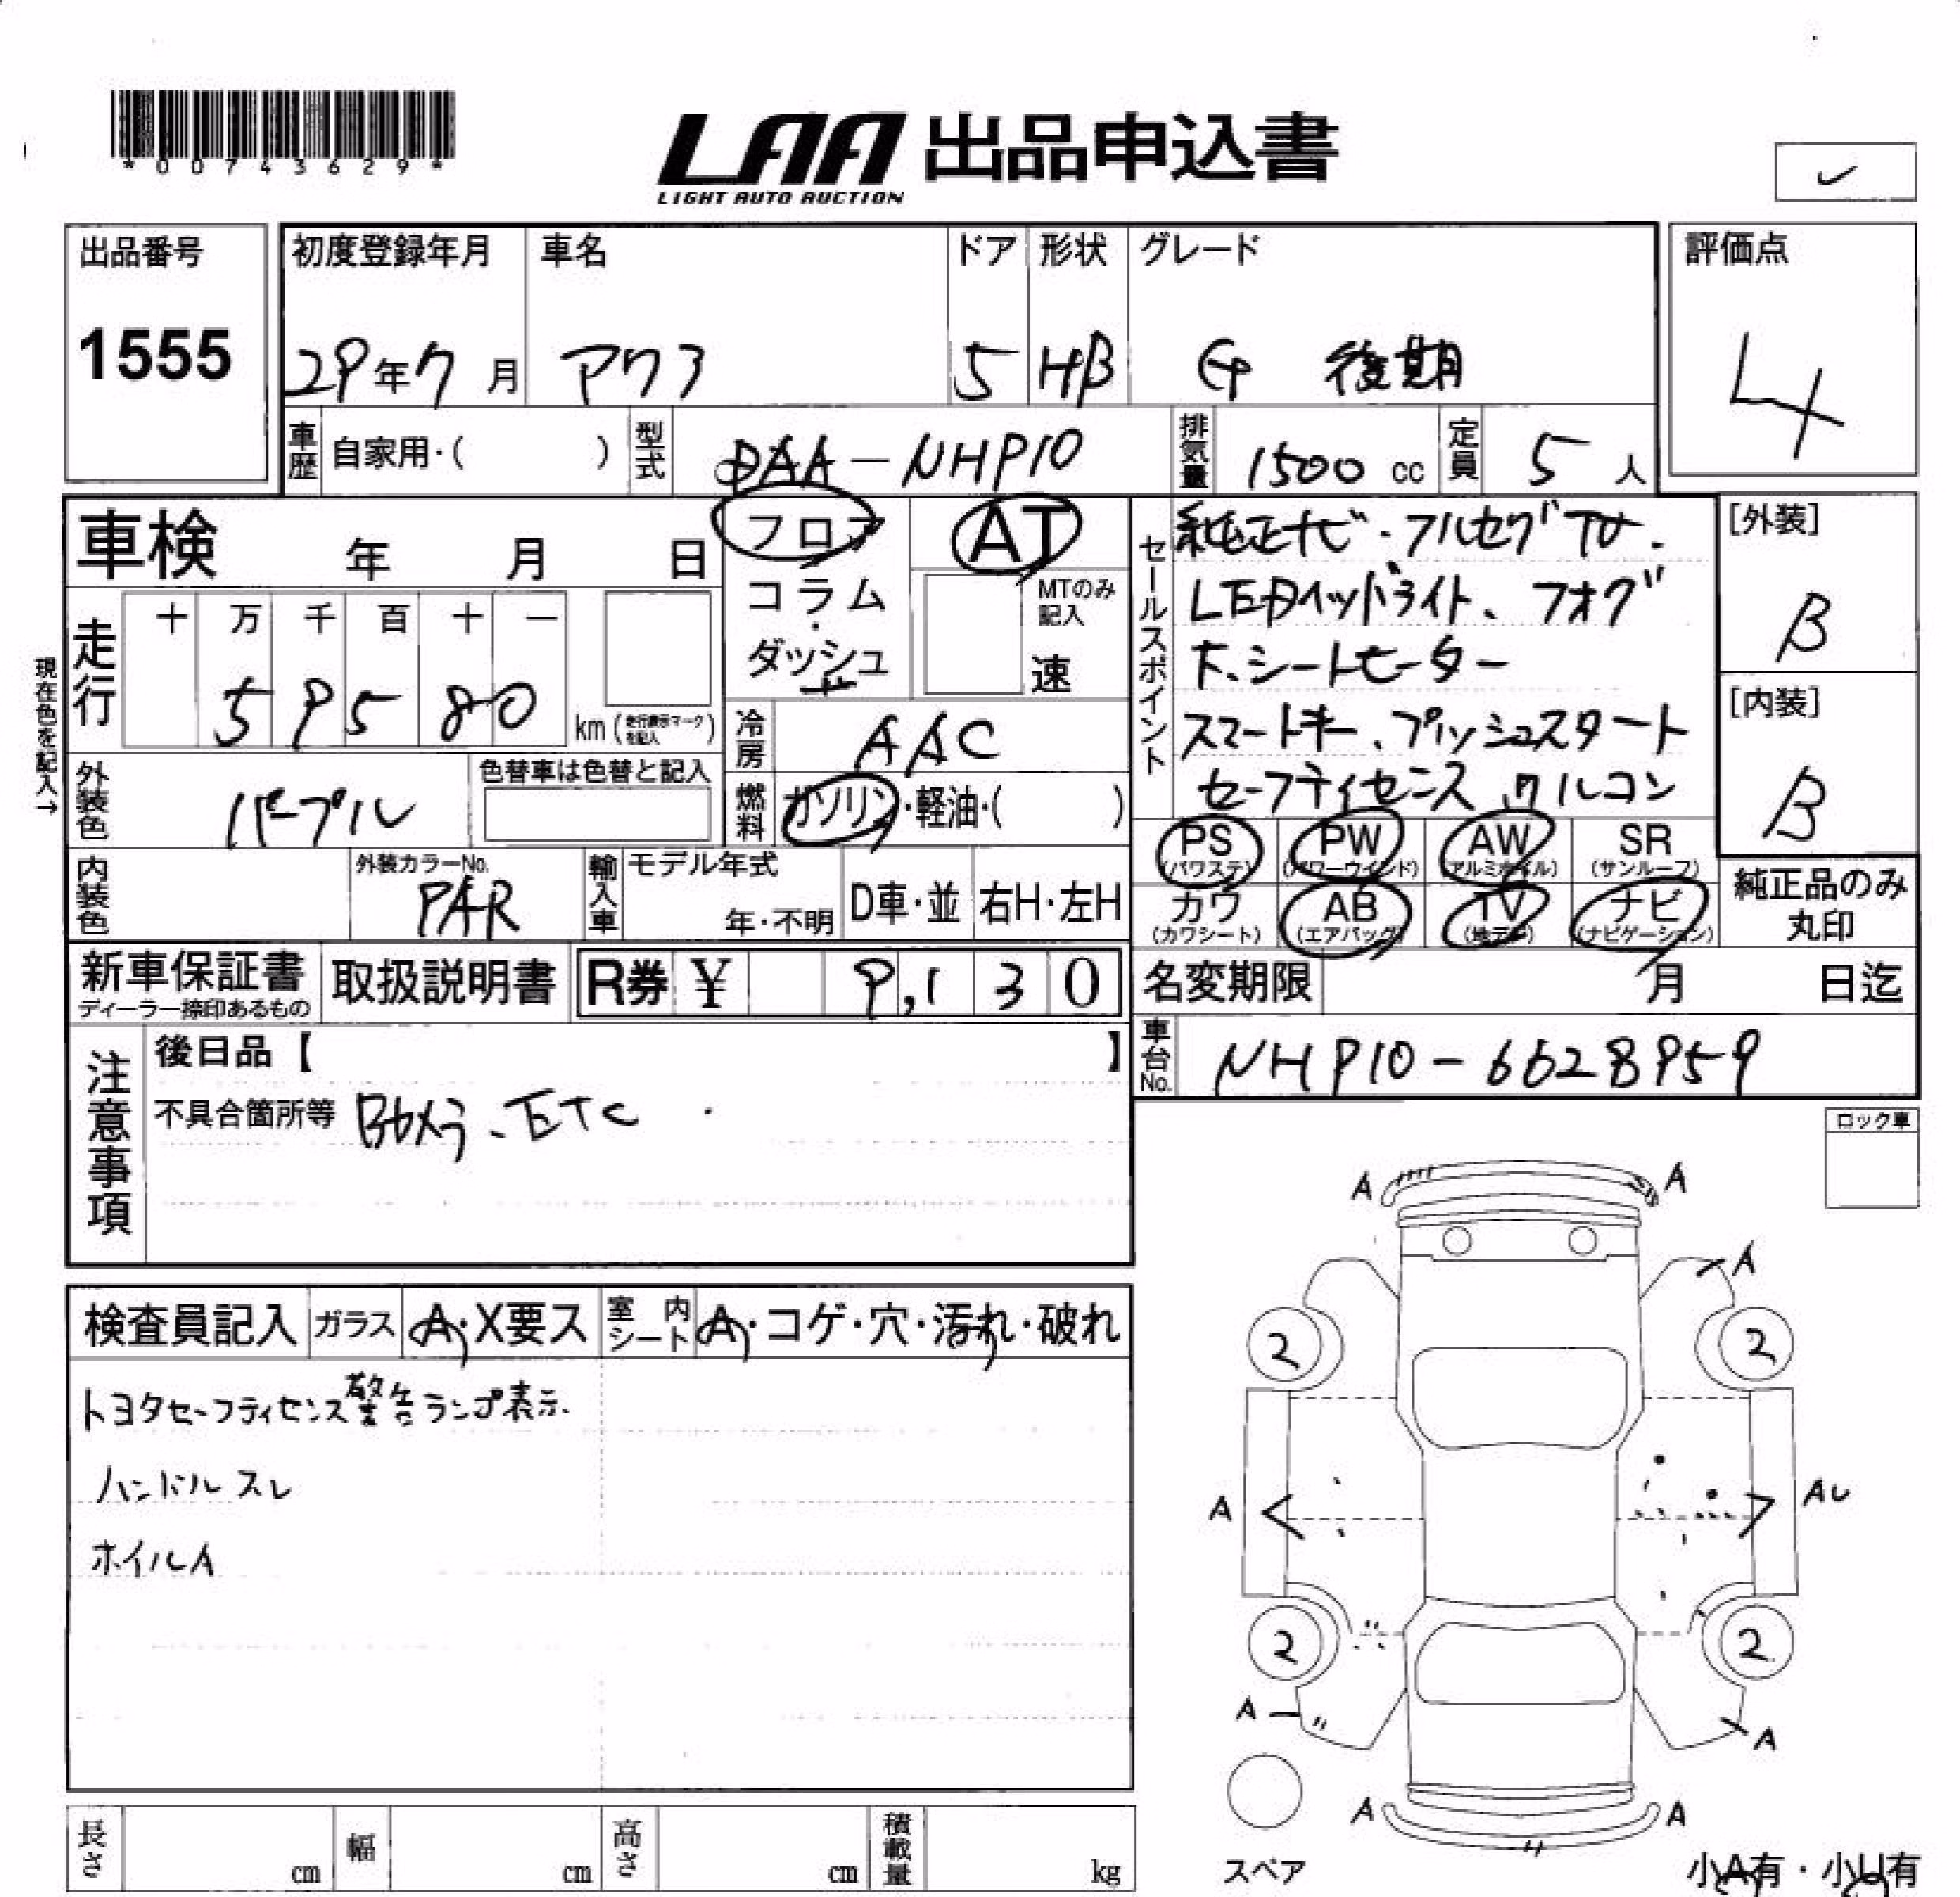 *00743629*
LAA 出品申込書
LIGHT AUTO AUCTION
出品番号
1555
初度登録年月
29年7月
車名
アクア
ドア
5
形状
HB
グレード
G 後期
評価点
4
車歴
自家用・( )
型式
DAA-NHP10
排気量
1500 cc
定員
5人
車検 年 月 日
フロア
コラム
・
ダッシュ
AT
MTのみ
記入
速
セールスポイント
純正ナビ・フルセグTV.
LEDヘッドライト、フォグ
ト、シートヒーター
スマートキー、プッシュスタート
セーフティセンス クルコン
[外装]
B
[内装]
B
現在色を記入→
走行
十 万 千 百 十 一
5 9 5 8 0
km(走行表示マークを記入)
冷房
AAC
外装色
パープル
色替車は色替と記入
燃料
ガソリン・軽油・( )
PS
(パワステ)
PW
(パワーウインド)
AW
(アルミホイル)
SR
(サンルーフ)
カワ
(カワシート)
AB
(エアバッグ)
TV
(地デジ)
ナビ
(ナビゲーション)
純正品のみ
丸印
内装色
外装カラーNo.
PAR
輸入車
モデル年式
年・不明
D車・並
右H・左H
新車保証書
ディーラー捺印あるもの
取扱説明書
R券 ¥ 9,130
名変期限 月 日迄
車台No.
NHP10-6628959
注意事項
後日品【 】
不具合箇所等 Bカメラ、ETC
ロック車
検査員記入
ガラス
A・X要ス
室内
シート
A・コゲ・穴・汚れ・破れ
トヨタセーフティセンス警告ランプ表示.
ハンドルスレ
ホイルA
A
A
A
2
2
A
AU
2
2
A
A
A
A
スペア
小A有・小U有
長さ cm
幅 cm
高さ cm
積載量 kg